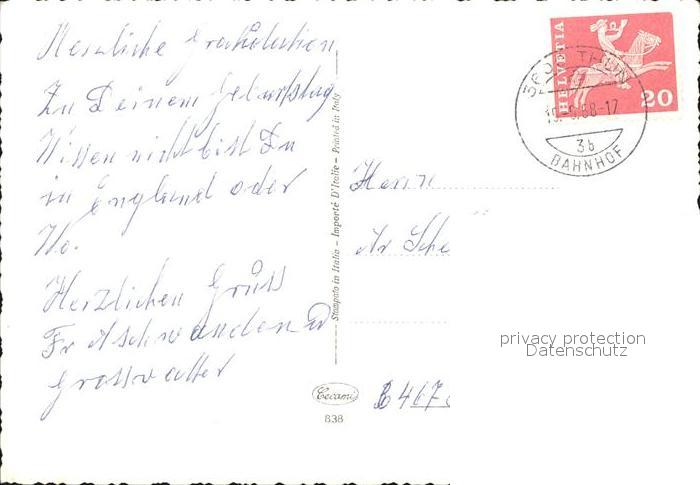 Herzliche Grachulation
Zu Deinem Geburtstag
Wissen nicht bist Du
in England oder
Wo.
Herzlichen Grüss
Fr Aschwanden
Grossvatter
Stampato in Italia – Importé D'Italie – Printed in Italy
Cecami
838
HELVETIA
20
THUN
19.-9.68-17
3b
BAHNHOF
Herrn
privacy protection
Datenschutz